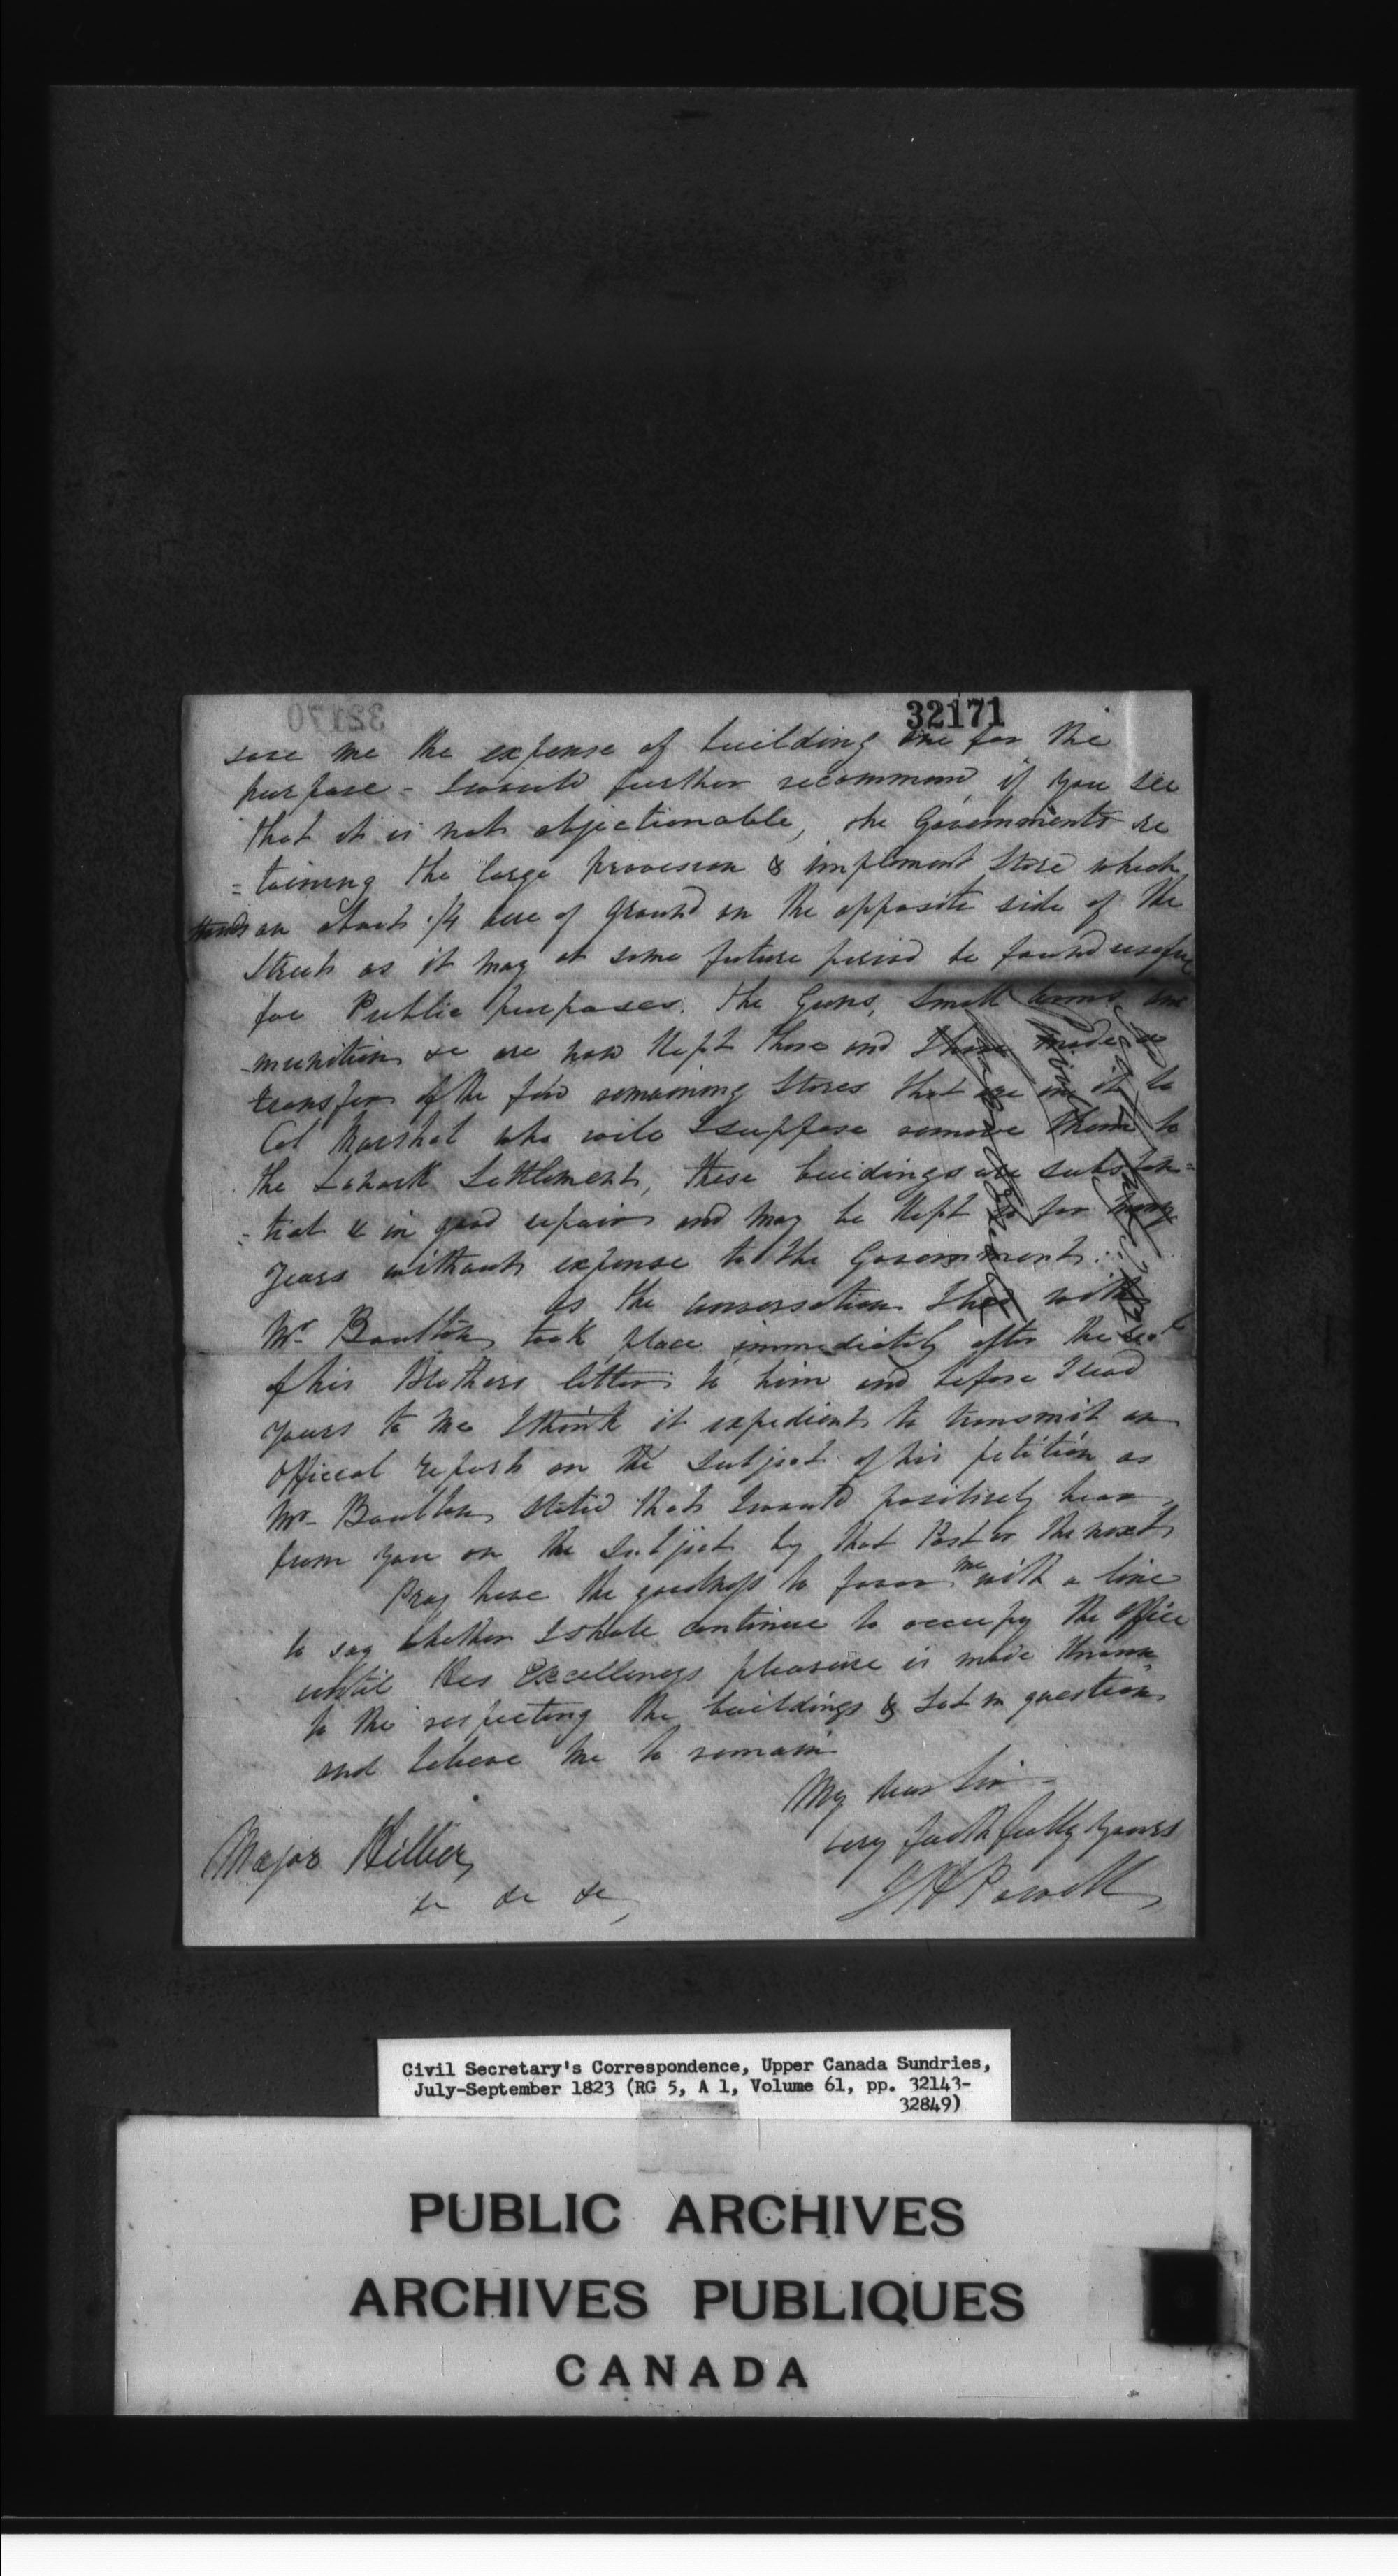 32171
save me the expense of building one for the
purpose - I would further recommend, if you see
that it is not objectionable, the Governments re
=taining the large provision & implement Store which
stands on about 1/4 acre of ground on the opposite side of the
Street as it may at some future period be found useful
for Public purposes. The Guns, Small arms, am
munition &c are now kept there and I have made a
transfer of the few remaining Stores that are in it to
Col Marshal who will I suppose remove them to
the Lanark Settlement, these buildings are substan=
=tial & in good repair and may be kept so for many
years without expense to the Government.
As the conversation I had with
Mr Boulton took place immediately after the
of his Brothers letter to him and before I read
yours to me I think it expedient to transmit an
Official report on the subject of his petition as
Mr Boulton stated that I would positively hear
from you on the subject by that Post or the next
Pray have the goodness to favor me with a line
to say whether I shall continue to occupy the office
until His Excellencys pleasure is made known
to me respecting the buildings & Lot in question
and believe me to remain
My dear Sir
very faithfully yours
Powell
Major Hillier
&c &c &c
Civil Secretary's Correspondence, Upper Canada Sundries,
July-September 1823 (RG 5, A 1, Volume 61, pp. 32143-
32849)
PUBLIC ARCHIVES
ARCHIVES PUBLIQUES
CANADA